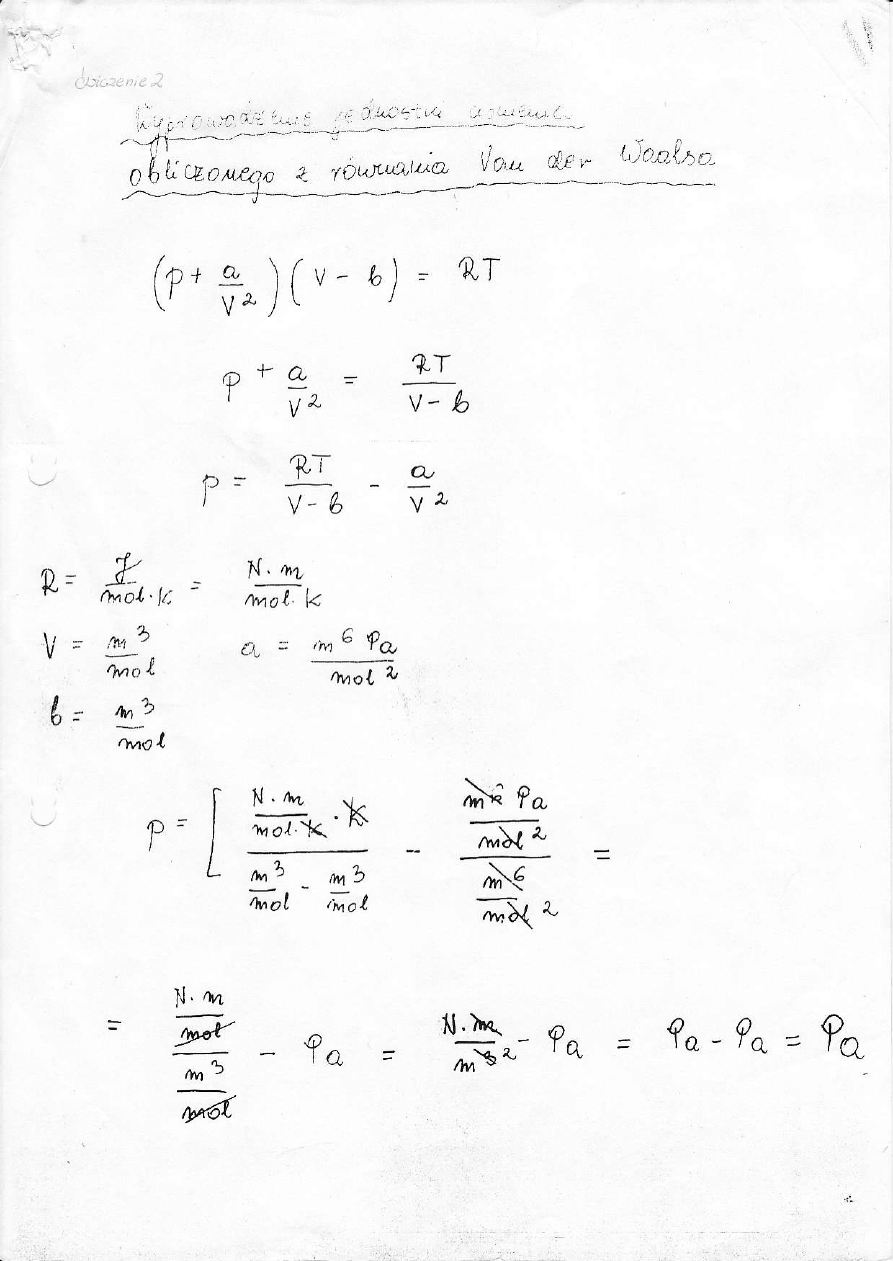 Ćwiczenie 2
Wyprowadzenie jednostki ciśnienia
obliczonego z równania Van der Waalsa
(p + a/V²)(V - b) = RT
p + a/V² = RT/(V - b)
p = RT/(V - b) - a/V²
R = J/(mol·K) = N·m/(mol·K)
V = m³/mol a = m⁶ Pa/mol²
b = m³/mol
p = [ (N·m/(mol·K) · K)/(m³/mol - m³/mol) - (m⁶ Pa/mol²)/(m⁶/mol²) =
= (N·m/mol)/(m³/mol) - Pa = N·m/m³ ² - Pa = Pa - Pa = Pa